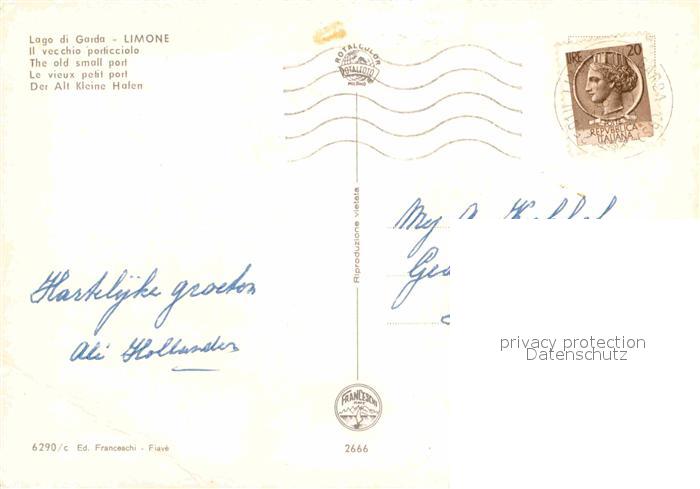 Lago di Garda - LIMONE
Il vecchio porticciolo
The old small port
Le vieux petit port
Der Alt Kleine Hafen
ROTALCOLOR
ROTALFOTO
MILANO
LIRE 20
POSTE
REPVBBLICA
ITALIANA
Riproduzione vietata
Hartelijke groeten
Ali Hollander
Mej
privacy protection
Datenschutz
FRANCESCHI
6290/c Ed. Franceschi - Fiavè
2666